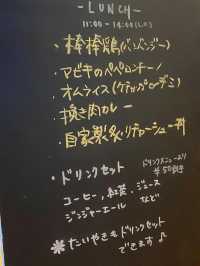 -LUNCH-
11:00 - 14:00 (L.O)
・棒棒鶏(バンバンジー)
・マビキのペペロンチーノ
・オムライス(ケチャップorデミ)
・挽き肉カレー
・自家製炙りチャーシュー丼
・ドリンクセット
ドリンクメニューより
¥50引き
コーヒー、紅茶、ジュース
ジンジャーエール など
※たいやきもドリンクセット
できます♪